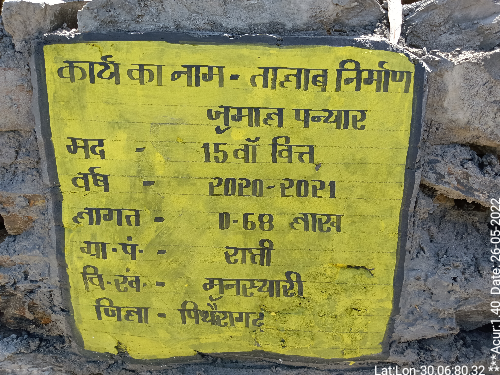 कार्य का नाम - तालाब निर्माण
जुमाल पन्यार
मद - 15 वॉ वित्त
वर्ष - 2020-2021
लागत - 0-68 लाख
ग्रा·पं· - राती
वि·खं· - मुनस्यारी
जिला - पिथौरागढ
Lat:Lon-30.06:80.32
Acur:1.40 Date:26-05-2022